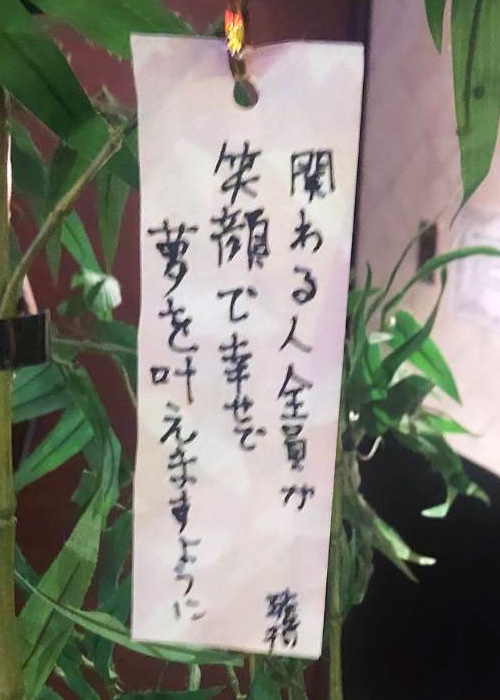 関わる人全員が
笑顔で幸せで
夢を叶えますように